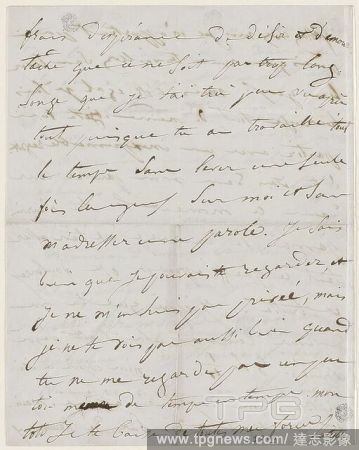 frais d'espérance de désir et d'
tâche que ce ne soit pas trop long
Songe que je t'ai
tout puisque tu as travaillé tout
le temps sans lever une seule
fois les yeux sur moi et sans
m'adresser une parole. Je sais
bien que je pouvais te regarder, et
je ne m'en suis pas privée, mais
je ne te vois pas aussi bien quand
tu ne me regardes pas un peu
toi de temps en temps mon
toto. Je te baise de toutes mes forces
TPG
www.tpgnews.com / 達志影像